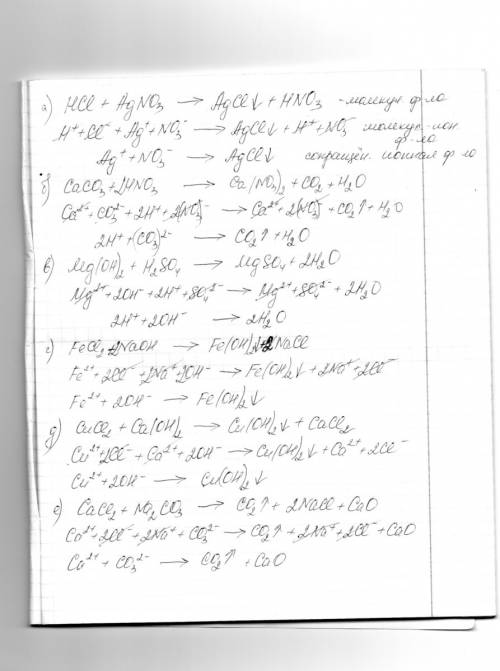 а) HCl + AgNO₃ → AgCl↓ + HNO₃ - молекул. ф-ла
H⁺ + Cl⁻ + Ag⁺ + NO₃⁻ → AgCl↓ + H⁺ + NO₃⁻ молекул.-ион
ф-ла
Ag⁺ + NO₃⁻ → AgCl↓ сокращён. ионная ф-ла
б) CaCO₃ + 2HNO₃ → Ca(NO₃)₂ + CO₂ + H₂O
Ca²⁺ + CO₃²⁻ + 2H⁺ + 2(NO₃)⁻ → Ca²⁺ + 2(NO₃)⁻ + CO₂↑ + H₂O
2H⁺ + (CO₃)²⁻ → CO₂↑ + H₂O
в) Mg(OH)₂ + H₂SO₄ → MgSO₄ + 2H₂O
Mg²⁺ + 2OH⁻ + 2H⁺ + SO₄²⁻ → Mg²⁺ + SO₄²⁻ + 2H₂O
2H⁺ + 2OH⁻ → 2H₂O
г) FeCl₂ + 2NaOH → Fe(OH)₂↓ + 2NaCl
Fe²⁺ + 2Cl⁻ + 2Na⁺ + 2OH⁻ → Fe(OH)₂↓ + 2Na⁺ + 2Cl⁻
Fe²⁺ + 2OH⁻ → Fe(OH)₂↓
д) CuCl₂ + Ca(OH)₂ → Cu(OH)₂↓ + CaCl₂
Cu²⁺ + 2Cl⁻ + Ca²⁺ + 2OH⁻ → Cu(OH)₂↓ + Ca²⁺ + 2Cl⁻
Cu²⁺ + 2OH⁻ → Cu(OH)₂↓
е) CaCl₂ + Na₂CO₃ → CO₂↑ + 2NaCl + CaO
Ca²⁺ + 2Cl⁻ + 2Na⁺ + CO₃²⁻ → CO₂↑ + 2Na⁺ + 2Cl⁻ + CaO
Ca²⁺ + CO₃²⁻ → CO₂↑ + CaO